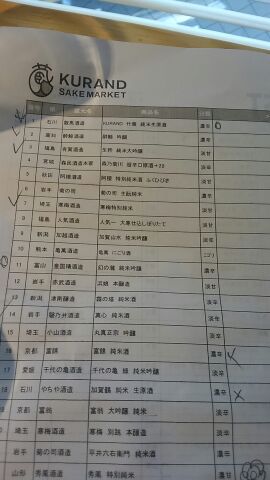 KURAND
SAKE MARKET
番号 県 蔵元名 商品名 分類
1 石川 数馬酒造 KURAND 竹葉 純米生原酒 濃辛
2 高知 酔鯨酒造 酔鯨 吟醸 淡辛
3 福島 有賀酒造 生粋 純米大吟醸 淡甘
4 宮城 森民酒造本家 森乃菊川 超辛口原酒+20 濃辛
5 秋田 阿櫻酒造 阿櫻 特別純米酒 淡甘
6 岩手 菊の司 菊の司 生酛純米 濃辛
7 埼玉 寒梅酒造 寒梅特別純米 淡甘
8 福島 人気酒造 人気一 淡辛
9 新潟 加越酒造 加賀山水 純米吟醸 淡甘
10 熊本 亀萬酒造 亀萬 にごり酒 にごり
11 富山 皇国晴酒造 幻の瀧 純米吟醸 濃辛
12 岩手 赤武酒造 浜娘 本醸造 淡甘
13 新潟 津南醸造 霧の塔 純米酒 淡辛
14 岩手 磐乃井酒造 純米酒 淡甘
15 埼玉 小山酒造 丸眞正宗 吟醸 淡辛
16 京都 富錦 富錦 純米酒 濃辛
17 愛媛 千代の亀酒造 千代の亀 純米吟醸 淡辛
18 石川 やちや酒造 加賀鶴 純米 生原酒 濃辛
京都 富翁 富翁 大吟醸 純米 淡辛
埼玉 寒梅酒造 寒梅 別誂 本醸造 淡辛
岩手 菊の司酒造 平井六右衛門 純米酒 淡辛
山形 秀鳳酒造 秀鳳 特別純米 淡辛